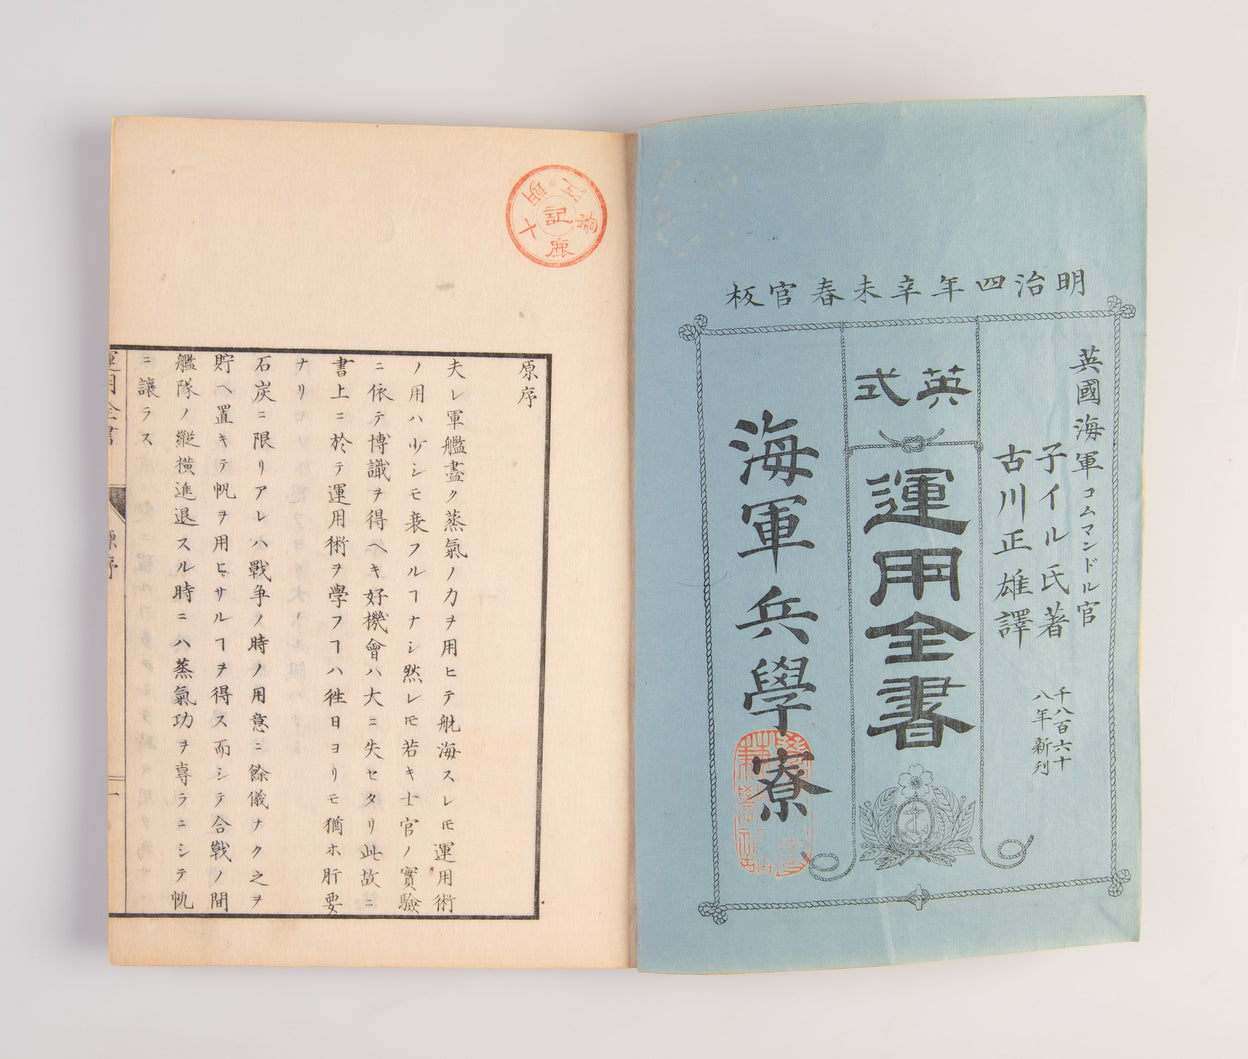 明治四年辛未春官板
英國海軍コムマンドル官
子イル氏著
古川正雄譯
千八百六十
八年新刋
英式
運用全書
海軍兵學寮
原序
夫レ軍艦盡ク蒸氣ノ力ヲ用ヒテ航海スレ𪜈運用術
ノ用ハ少シモ衰フルヿナシ然レ𪜈若キ士官ノ實驗
ニ依テ博識ヲ得ヘキ好機會ハ大ニ失セタリ此故ニ
書上ニ於テ運用術ヲ學フヿハ徃日ヨリモ猶ホ肝要
ナリ
石炭ニ限リアレハ戰争ノ時ノ用意ニ餘儀ナク之ヲ
貯ヘ置キテ帆ヲ用ヒサルヿヲ得ス而シテ合戰ノ間
艦隊ノ縱横進退スル時ニハ蒸氣功ヲ専ラニシテ帆
ニ讓ラス
運用全書